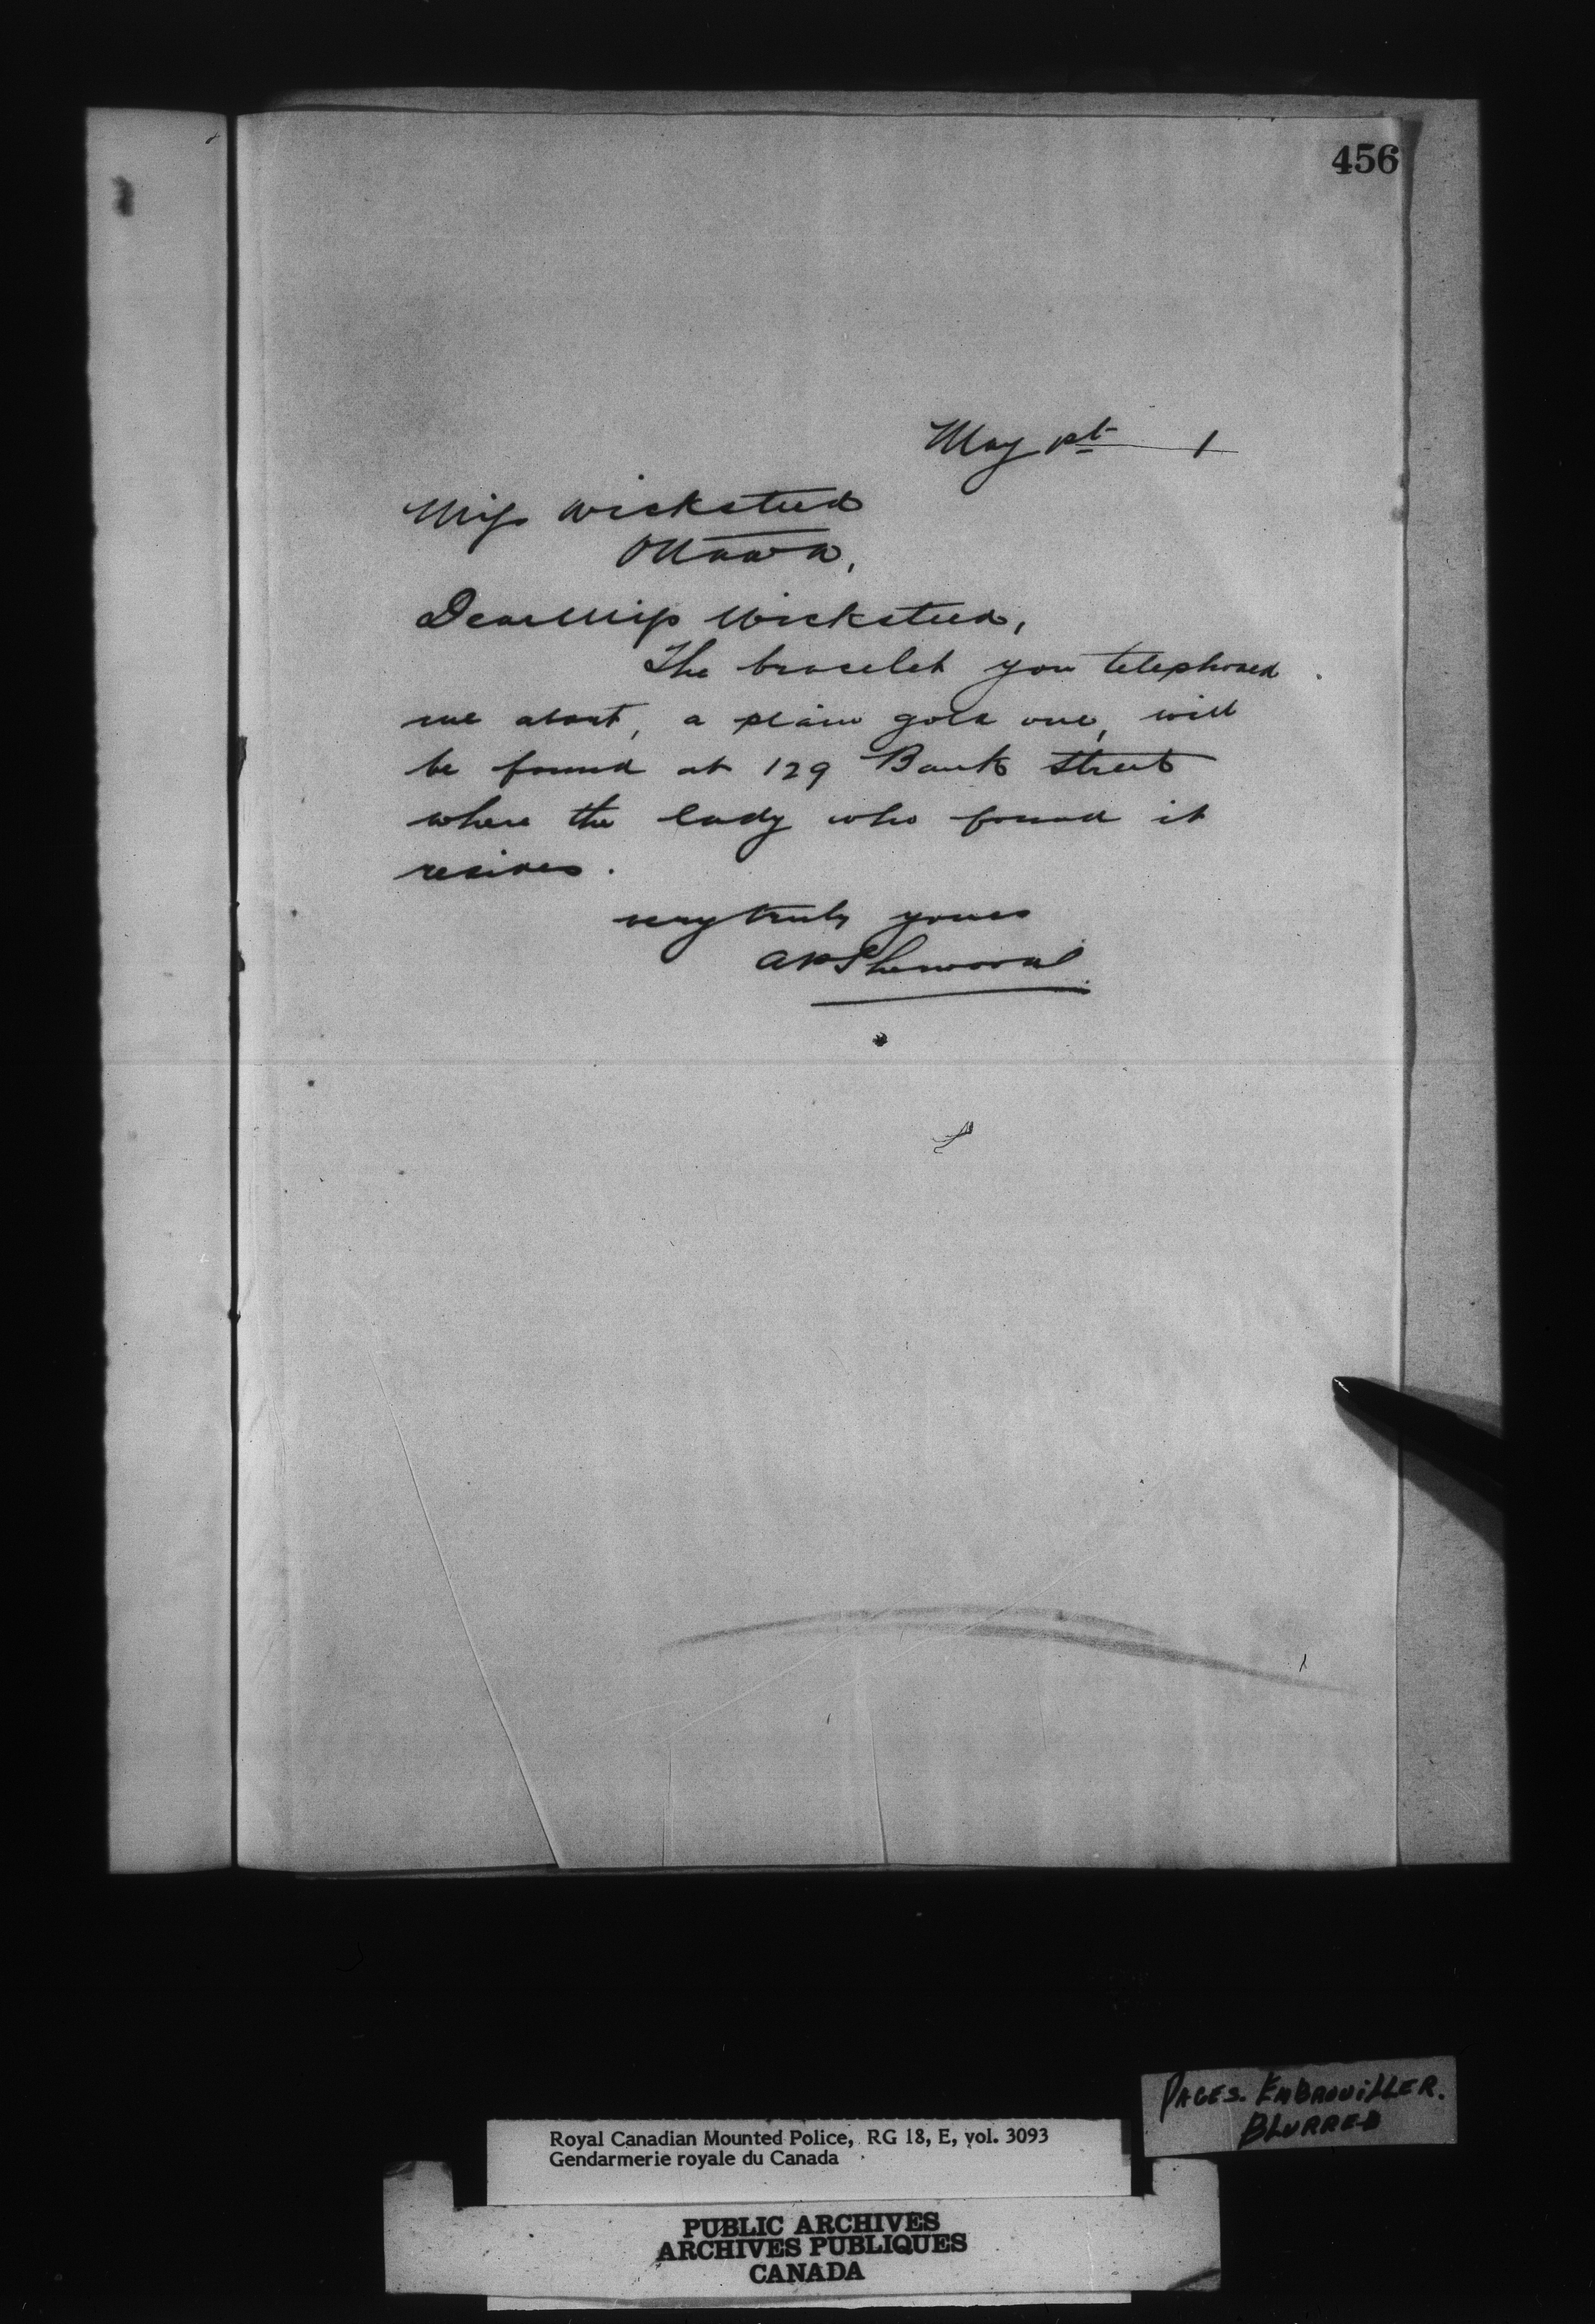 456
May 1st 1
Miss Wicksteed
Ottawa,
Dear Miss Wicksteed,
The bracelet you telephoned
me about, a plain gold one, will
be found at 129 Bank Street
where the lady who found it
resides.
very truly yours
A P Sherwood
PAGES. EMBROUiLLER.
BLURRED
Royal Canadian Mounted Police, RG 18, E, vol. 3093
Gendarmerie royale du Canada
PUBLIC ARCHIVES
ARCHIVES PUBLIQUES
CANADA